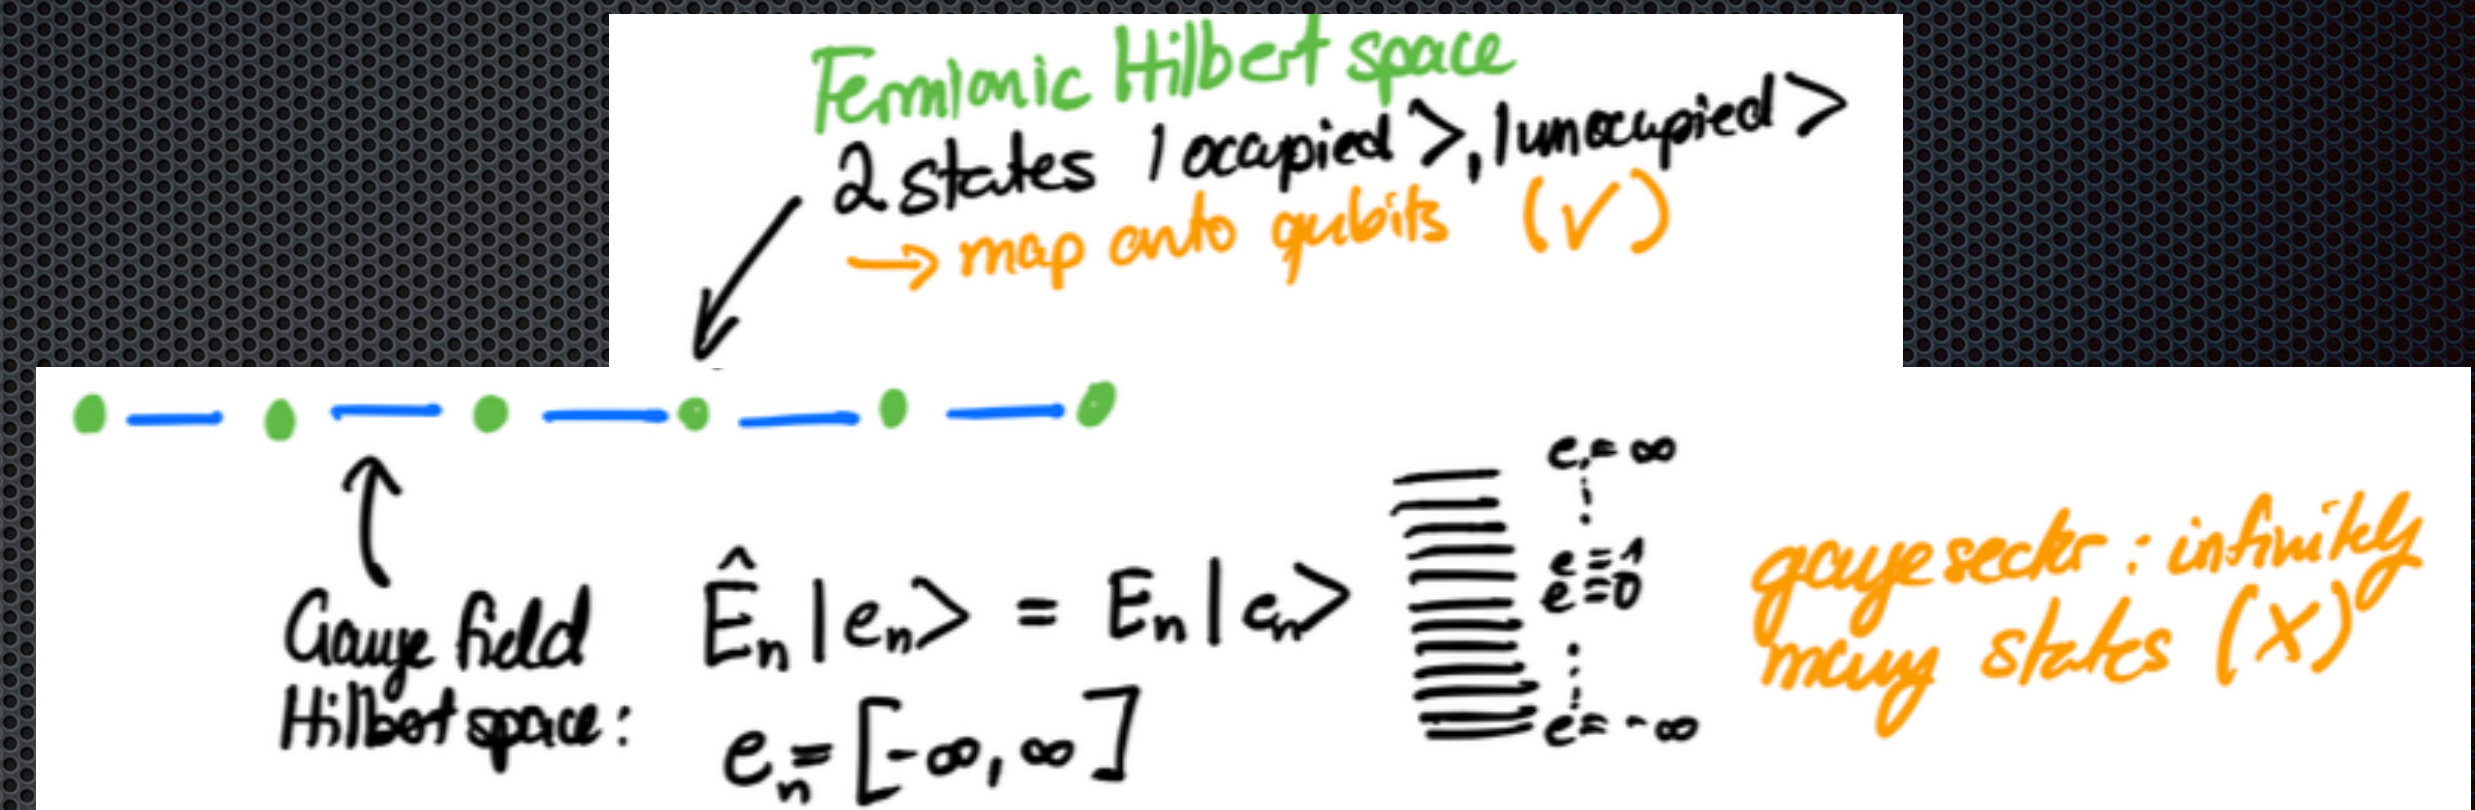 Fermionic Hilbert space
2 states |occupied>, |unoccupied>
→ map onto qubits (✓)
Gauge field
Hilbert space:
Ê_n |e_n> = E_n |e_n>
e_n = [-∞, ∞]
e = ∞
⋮
e = 1
e = 0
⋮
e = -∞
gauge sector : infinitely
many states (X)